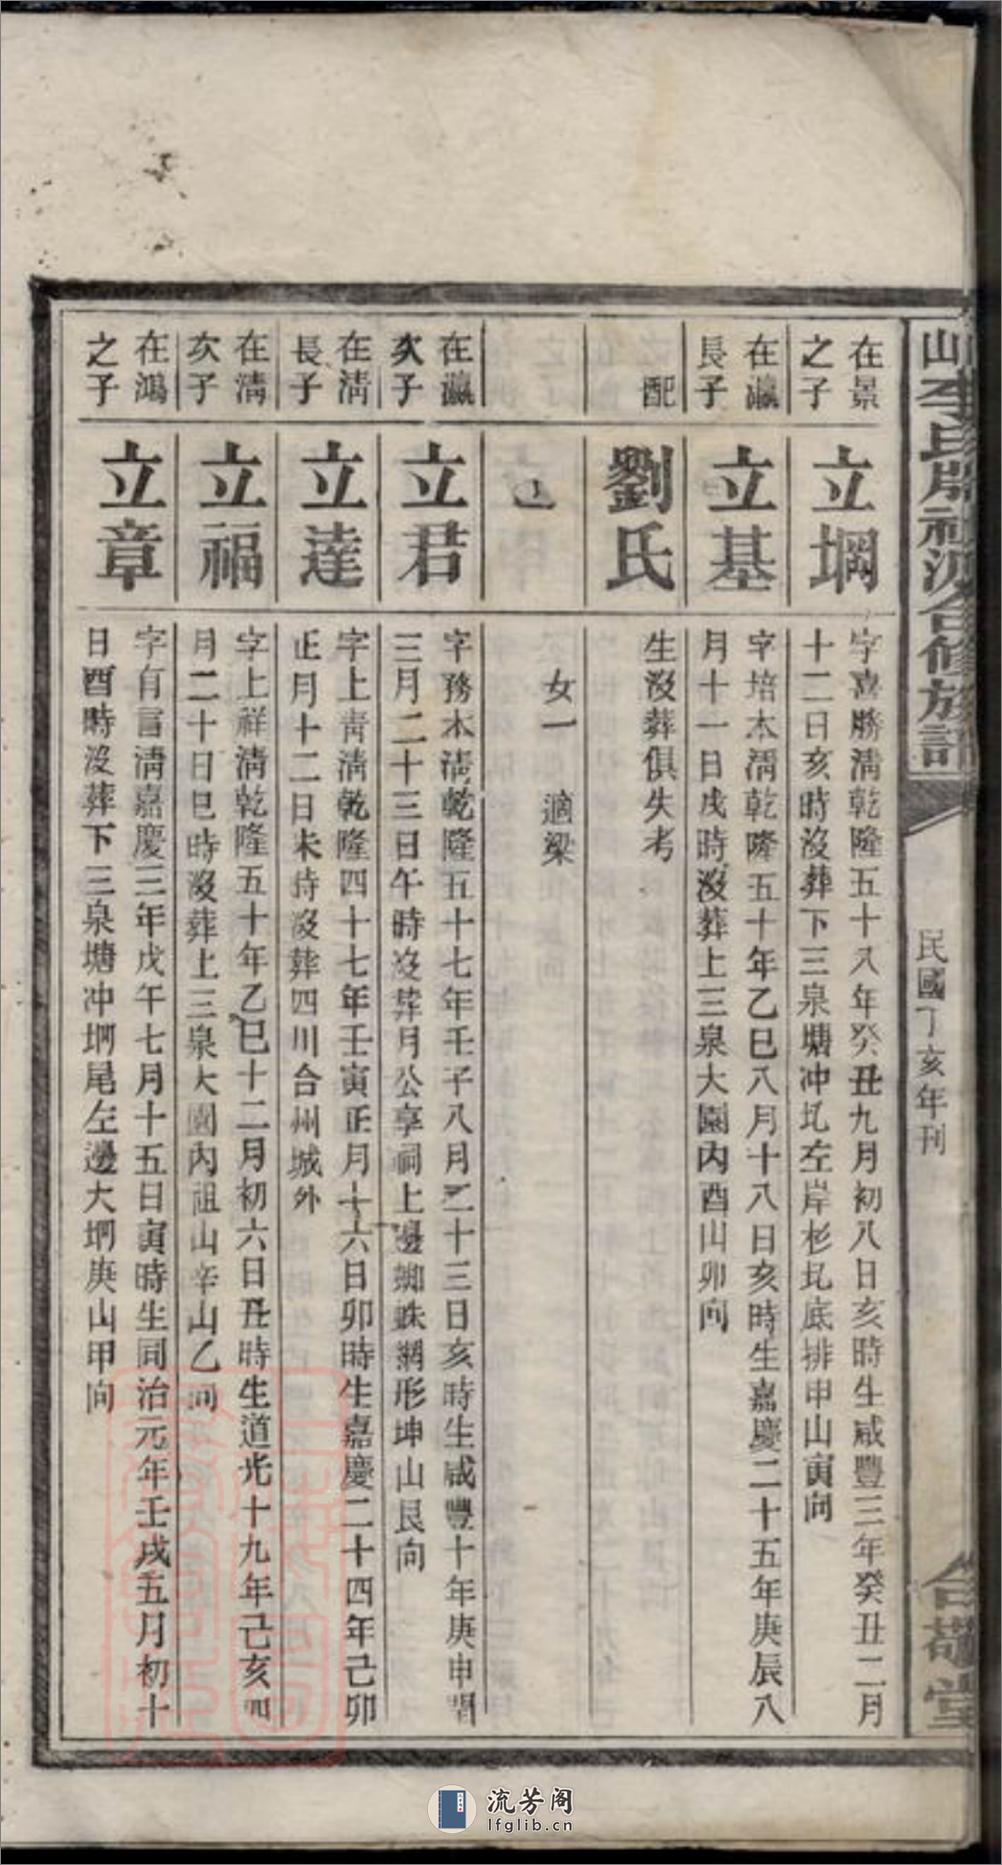 山李氏房社派合修族譜
民國丁亥年刊
合敬堂
在景
之子
立堈
字喜勝淸乾隆五十八年癸丑九月初八日亥時生咸豐三年癸丑二月
十二日亥時沒葬下三泉塘冲圠左岸杉圠底排申山寅向
在瀛
長子
立基
字培本淸乾隆五十年乙巳八月十八日亥時生嘉慶二十五年庚辰八
月十一日戌時沒葬上三泉大園內酉山卯向
配
劉氏
生沒葬俱失考
女一 適梁
在瀛
次子
立君
字務本淸乾隆五十七年壬子八月二十三日亥時生咸豐十年庚申閏
三月二十三日午時沒葬月公享祠上邊蜘蛛網形坤山艮向
在淸
長子
立達
字上靑淸乾隆四十七年壬寅正月十六日卯時生嘉慶二十四年己卯
正月十二日未待沒葬四川合州城外
在淸
次子
立福
字上祥淸乾隆五十年乙巳十二月初六日丑時生道光十九年己亥四
月二十日巳時沒葬上三泉大園內祖山辛山乙向
在鴻
之子
立章
字有言淸嘉慶三年戊午七月十五日寅時生同治元年壬戌五月初十
日酉時沒葬下三泉塘冲堈尾左邊大堈庚山甲向
流芳阁
lfglib.cn